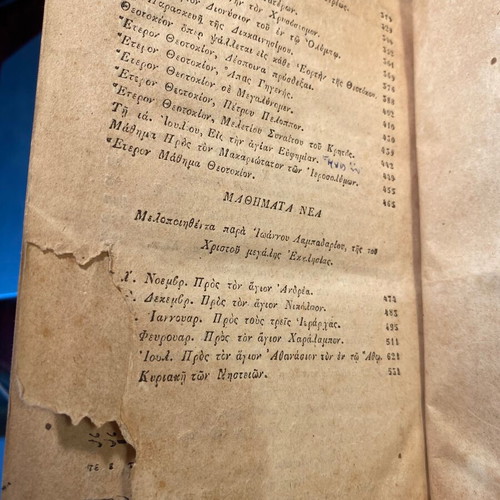 τὴν τὸν Χρυσόστομον. 379
Παρασκευῇ τῆς Διακαινησίμου.
Διονύσιον τοῦ ἐν τῷ Ὀλύμπῳ.
Θεοτοκίον ὅπερ ψάλλεται εἰς κάθε Ἑορτὴν τῆς Θεοτόκου.
Ἕτερον Θεοτοκίον, Δέσποινα πρόσδεξαι.
Ἕτερον Θεοτοκίον, Ἅπας Γηγενής.
Ἕτερον Θεοτοκίον σὲ Μεγαλύνομεν. 402
Ἕτερον Θεοτοκίον, Πέτρου Πελοπον. 410
Ἕτερον Θεοτοκίον, Μελετίου Σιναΐτου τοῦ Κρητός. 450
Τῇ ιά. Ἰουλίου, Εἰς τὴν ἁγίαν Εὐφημίαν. 442
Μάθημα Πρὸς τὸν Μακαριώτατον τῶν Ἱεροσολύμων. 449
Ἕτερον Μάθημα Θεοτοκίον. 455
465
ΜΑΘΗΜΑΤΑ ΝΕΑ
Μελοποιηθέντα παρὰ Ἰωάννου Λαμπαδαρίου, τῆς τοῦ
Χριστοῦ μεγάλης Ἐκκλησίας.
Νοεμβρ. Πρὸς τὸν ἅγιον Ἀνδρέα. 473
Δεκεμβρ. Πρὸς τὸν ἅγιον Νικόλαον. 483
Ἰαννουαρ. Πρὸς τοὺς τρεῖς Ἱεράρχας. 495
Φευρουαρ. Πρὸς τὸν ἅγιον Χαράλαμπον. 511
Ἰουλ. Πρὸς τὸν ἅγιον Ἀθανάσιον τὸν ἐν τῷ Ἄθῳ. 621
Κυριακὴ τῶν Νηστειῶν. 531